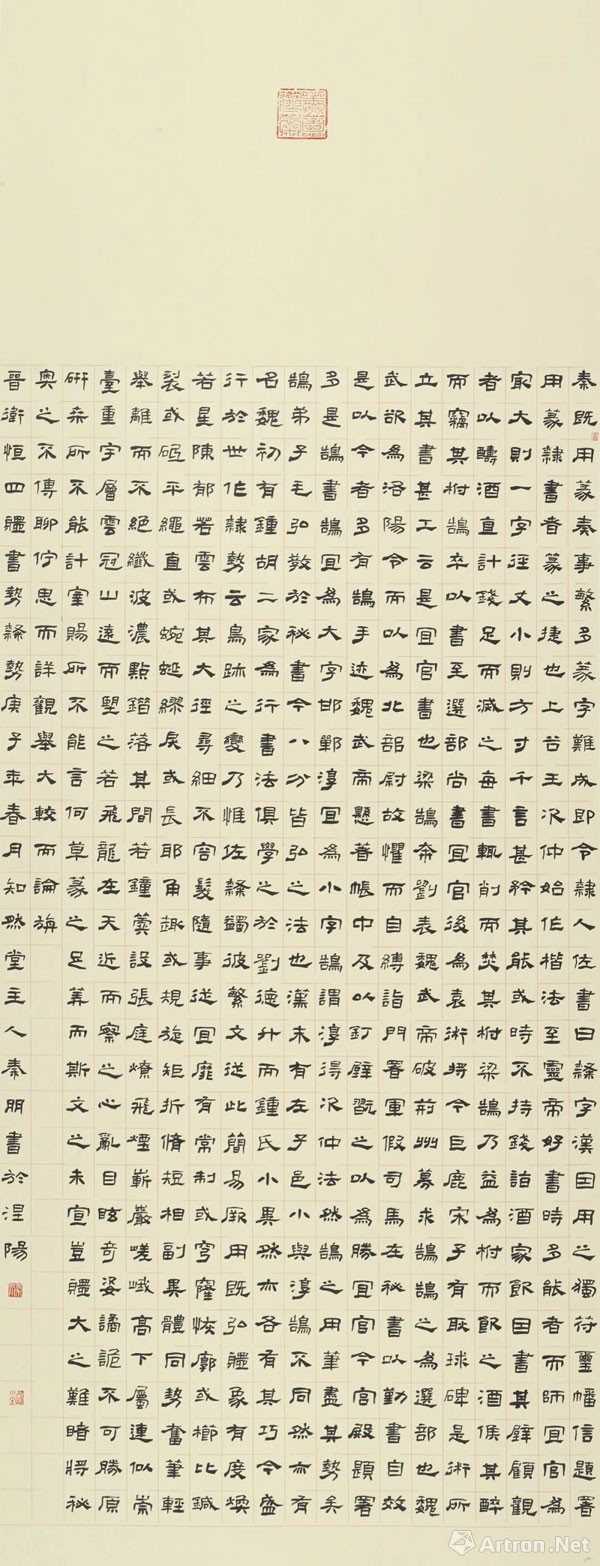 秦既用篆奏事繁多篆字難成即令隸人佐書曰隸字漢因用之獨符璽幡信題署
用篆隸書者篆之捷也上谷王次仲始作楷法至靈帝好書時多能者而師宜官為
最大則一字徑丈小則方寸千言甚矜其能或時不持錢詣酒家飲因書其壁顧觀
者以醻酒直計錢足而滅之每書輒削而焚其柎梁鵠乃益為柎而飲之酒候其醉
而竊其柎鵠卒以書至選部尚書宜官後為袁術將今巨鹿宋子有耿球碑是術所
立其書甚工云是宜官書也梁鵠奔劉表魏武帝破荊州募求鵠鵠之為選部也魏
武欲為洛陽令而以為北部尉故懼而自縛詣門署軍假司馬在秘書以勤書自效
是以今者多有鵠手迹魏武帝懸著帳中及以釘壁翫之以為勝宜官今宮殿題署
多是鵠書鵠宜為大字邯鄲淳宜為小字鵠謂淳得次仲法然鵠之用筆盡其勢矣
鵠弟子毛弘教於秘書今八分皆弘之法也漢末有左子邑小與淳鵠不同然亦有
名魏初有鍾胡二家為行書法俱學之於劉德升而鍾氏小異然亦各有其巧今盛
行於世作隸勢云鳥跡之變乃惟佐隸蠲彼繁文從此簡易厥用既弘體象有度煥
若星陳郁若雲布其大徑尋細不容髮隨事從宜靡有常制或穹窿恢廓或櫛比鍼
裂或砥平繩直或蜿蜒繆戾或長邪角趣或規旋矩折脩短相副異體同勢奮筆輕
舉離而不絕纖波濃點錯落其間若鐘簴設張庭燎飛煙嶄巖嵯峨高下屬連似崇
臺重宇層雲冠山遠而望之若飛龍在天近而察之心亂目眩奇姿譎詭不可勝原
研桑所不能計宰賜所不能言何草篆之足算而斯文之未宣豈體大之難睹將秘
奧之不傳聊佇思而詳觀舉大較而論旃
晉衛恒四體書勢隸勢庚子年春月知然堂主人秦朋書於涅陽
Artron.Net